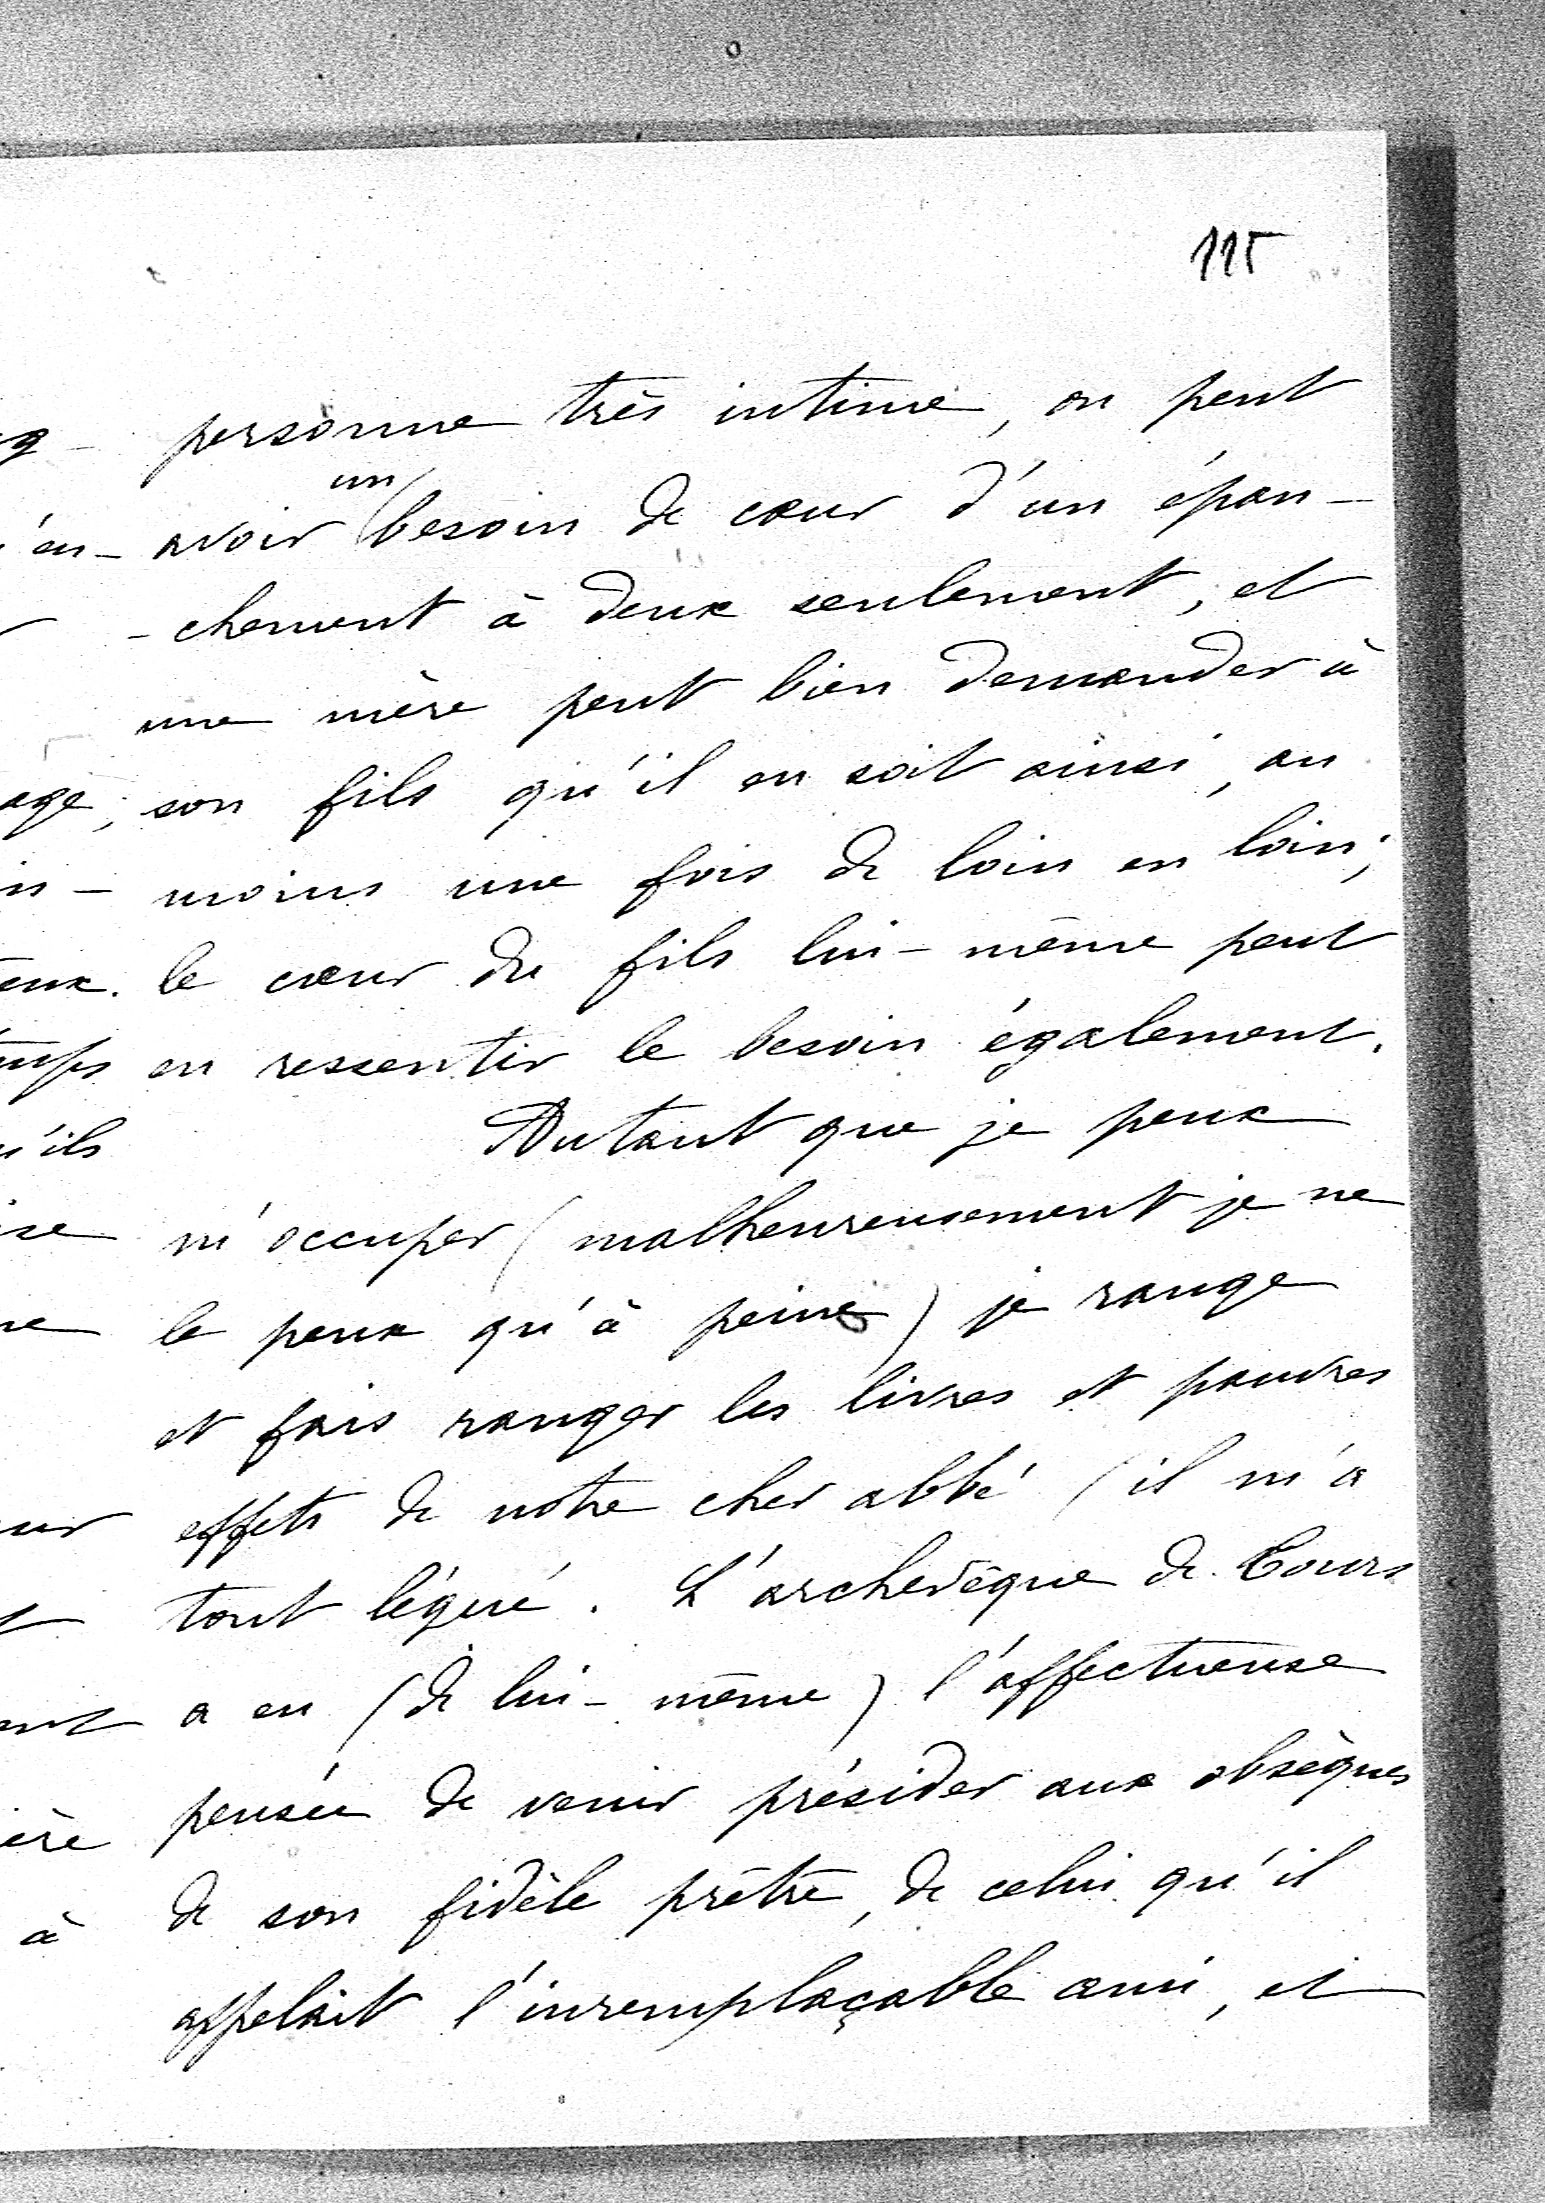 115
personne très intime, on peut
avoir un besoin de cœur d'un épan-
-chement à deux seulement, et
une mère peut bien demander à
son fils qu'il en soit ainsi, au
moins une fois de loin en loin;
le cœur du fils lui-même peut
en ressentir le besoin également.
Autant que je peux
m'occuper (malheureusement je ne
le peux qu'à peine) je range
et fais ranger les livres et pauvres
effets de notre cher abbé (il m'a
tout légué. L'archevêque de Tours
a eu (de lui-même) l'affectueuse
pensée de venir présider aux obsèques
de son fidèle prêtre, de celui qu'il
appelait l'inremplaçable ami, et